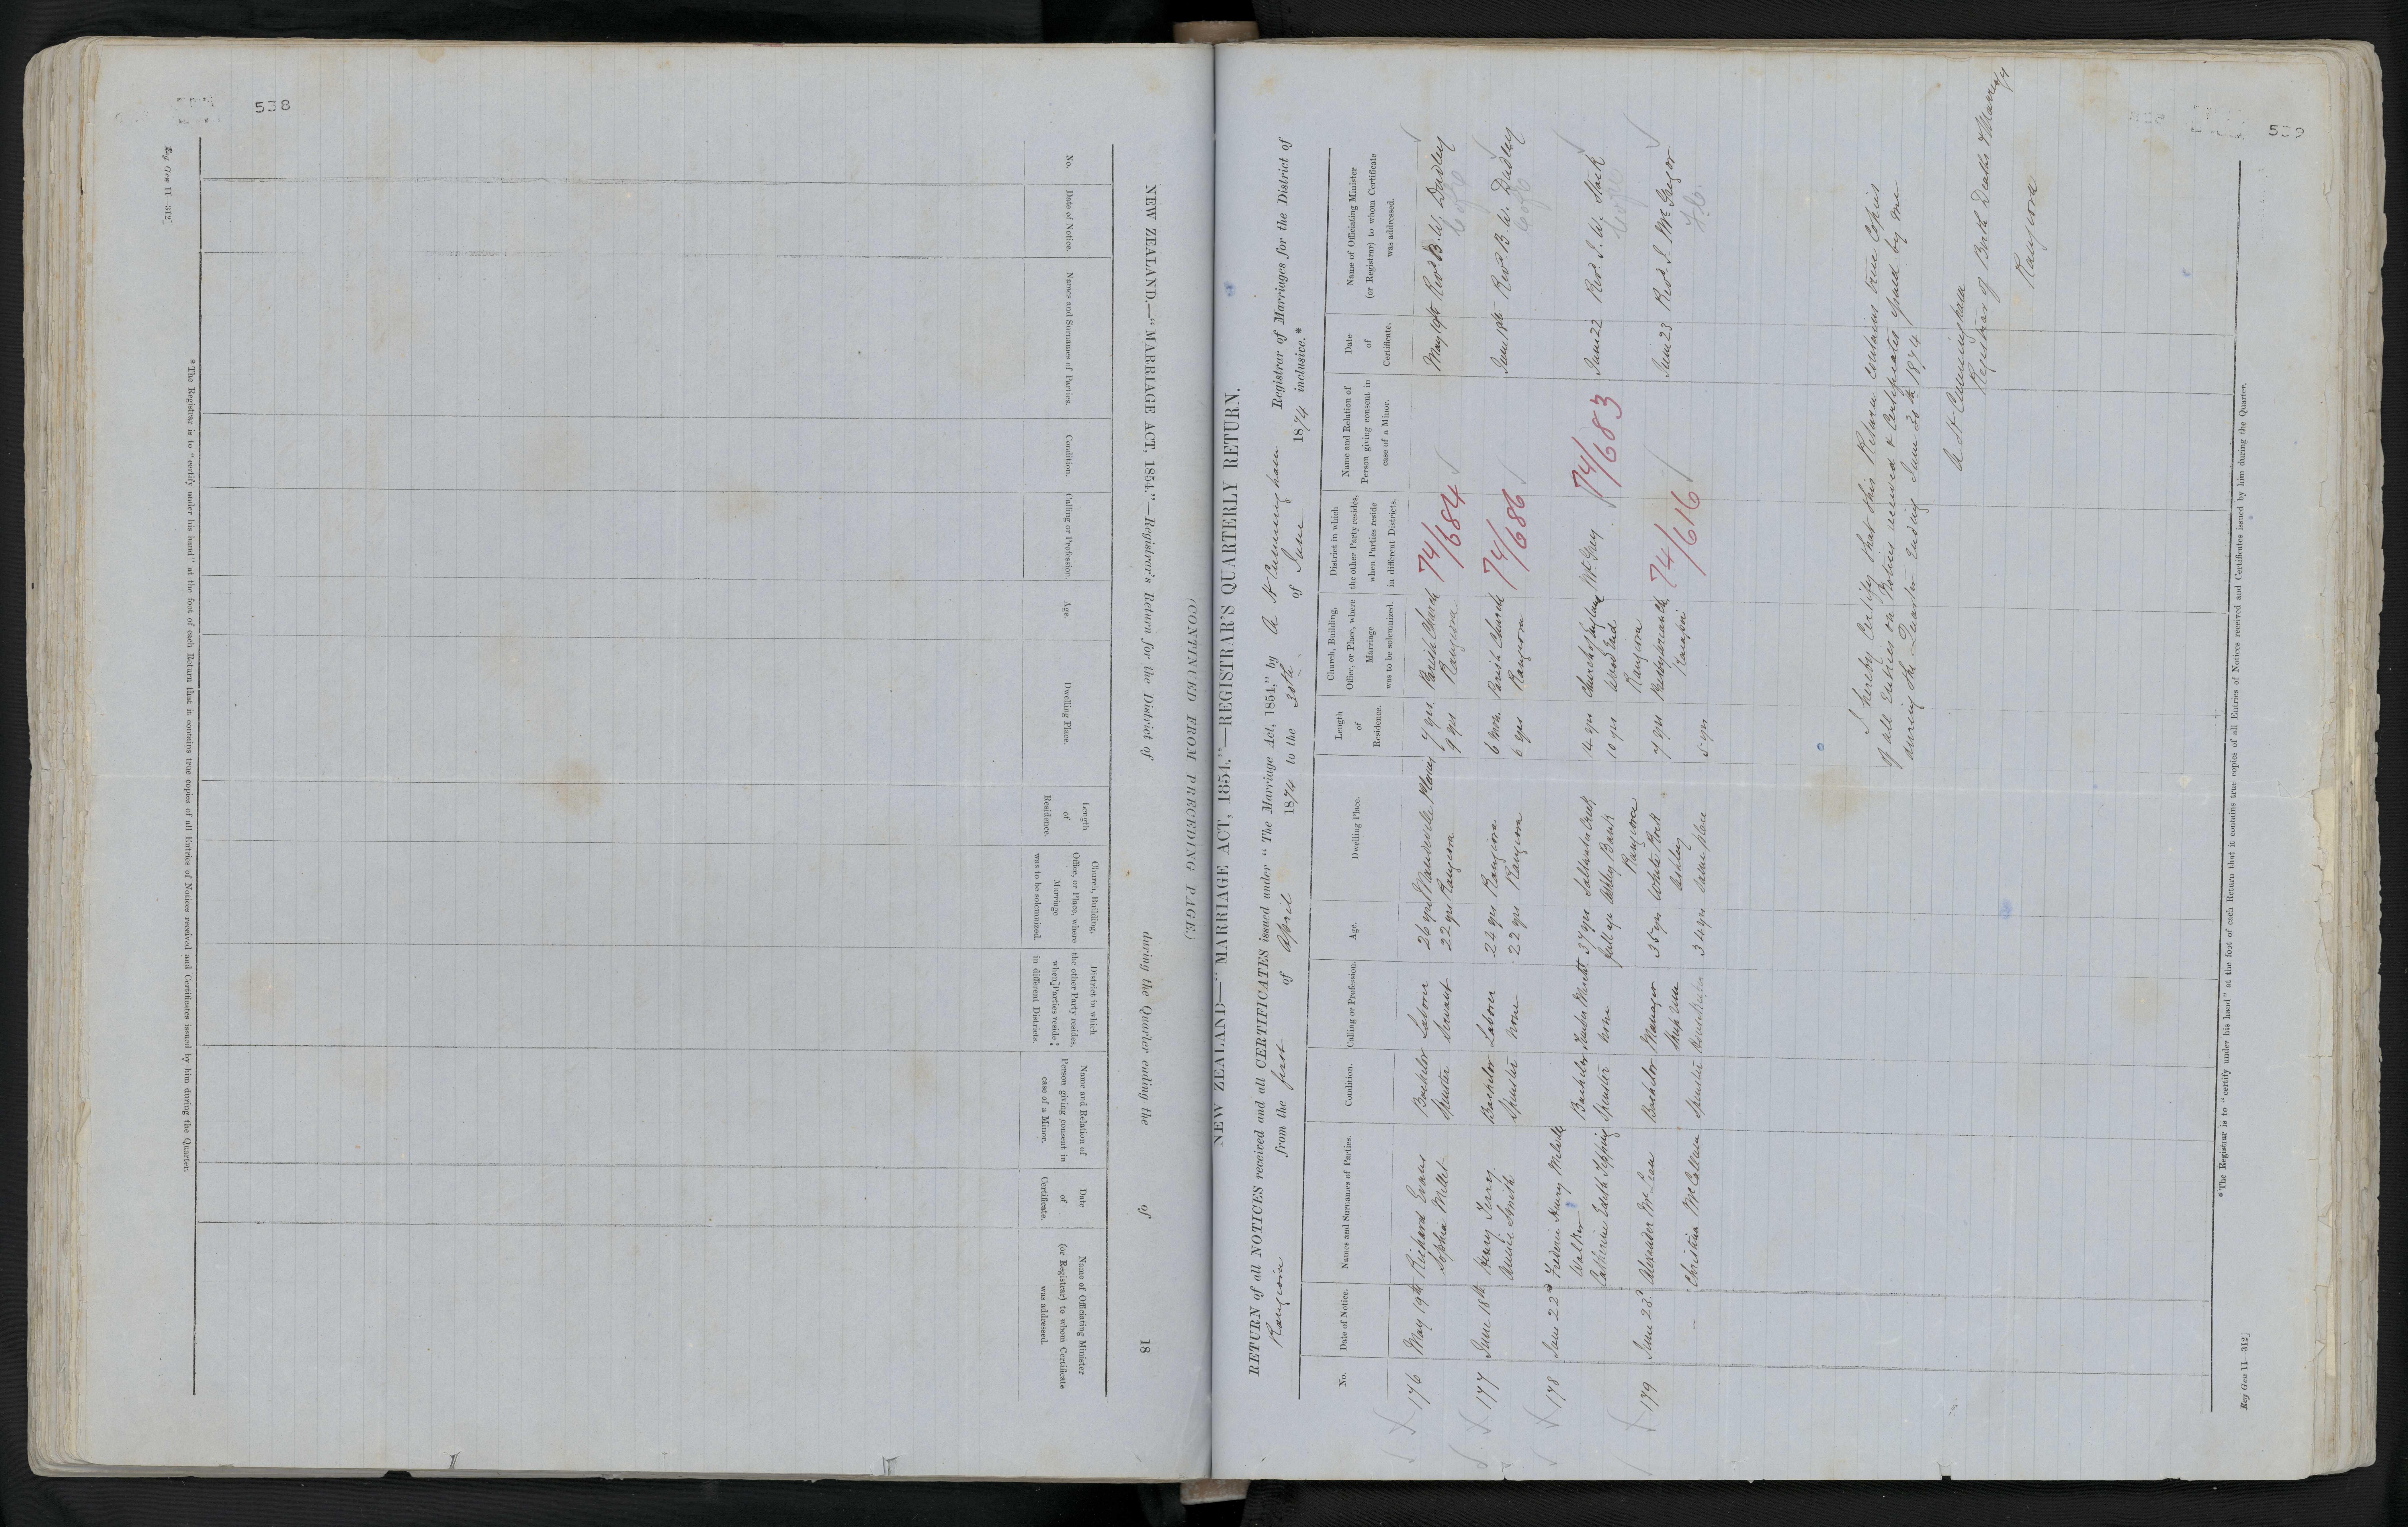 538
Reg Gen 11—312]
NEW ZEALAND.—"MARRIAGE ACT, 1854."—Registrar's Return for the District of during the Quarter ending the of 18
(CONTINUED FROM PRECEDING PAGE.)
No.
Date of Notice.
Names and Surnames of Parties.
Condition.
Calling or Profession.
Age.
Dwelling Place.
Length of Residence.
Church, Building, Office, or Place, where Marriage was to be solemnized.
District in which the other Party resides, when Parties reside in different Districts.
Name and Relation of Person giving consent in case of a Minor.
Date of Certificate.
Name of Officiating Minister (or Registrar) to whom Certificate was addressed.
*The Registrar is to "certify under his hand" at the foot of each Return that it contains true copies of all Entries of Notices received and Certificates issued by him during the Quarter.
539
NEW ZEALAND—"MARRIAGE ACT, 1854."—REGISTRAR'S QUARTERLY RETURN.
RETURN of all NOTICES received and all CERTIFICATES issued under "The Marriage Act, 1854," by A H Cunningham Registrar of Marriages for the District of
Rangiora from the first of April 1874 to the 30th of June 1874 inclusive.*
No.
Date of Notice.
Names and Surnames of Parties.
Condition.
Calling or Profession.
Age.
Dwelling Place.
Length of Residence.
Church, Building, Office, or Place, where Marriage was to be solemnized.
District in which the other Party resides, when Parties reside in different Districts.
Name and Relation of Person giving consent in case of a Minor.
Date of Certificate.
Name of Officiating Minister (or Registrar) to whom Certificate was addressed.
176 May 19th Richard Evans Bachelor Laborer 26 yrs Mandeville Plains 7 yrs Parish Church 74/684 May 19th Revd B. W. Dudley
Sophia Millet Spinster Servant 22 yrs Rangiora 9 yrs Rangiora C of E
177 June 18th Henry Terry Bachelor Laborer 22 yrs Rangiora 6 mon. Parish Church 74/686 June 18th Revd B. W. Dudley
Annie Smith Spinster None 22 yrs Rangiora 6 yrs Rangiora C of E
178 June 22d Frederic Henry Melville
Walker Bachelor 37 yrs 14 yrs Church of England 74/683 June 22 Revd J. W. Stack
Catherine Edith Tipping Spinster None full age Ashley Bank 10 yrs Wood End C of E
Rangiora Rangiora
179 June 23d Alexander McLean Bachelor Manager 35 yrs White Rock 7 yrs Presbyterian Ch. 74/616 June 23 Revd J. McGregor
Sheep run Ashley Kaiapoi
Christina McCallum Spinster 34 yrs Same place 5 yrs
I hereby Certify that this Return contains true Copies
of all Entries in Notices received & Certificates issued by me
during the Quarter Ending June 30th 1874
A H Cunningham
Registrar of Birth Deaths & Marriages
Rangiora
*The Registrar is to "certify under his hand" at the foot of each Return that it contains true copies of all Entries of Notices received and Certificates issued by him during the Quarter.
Reg Gen 11—312]